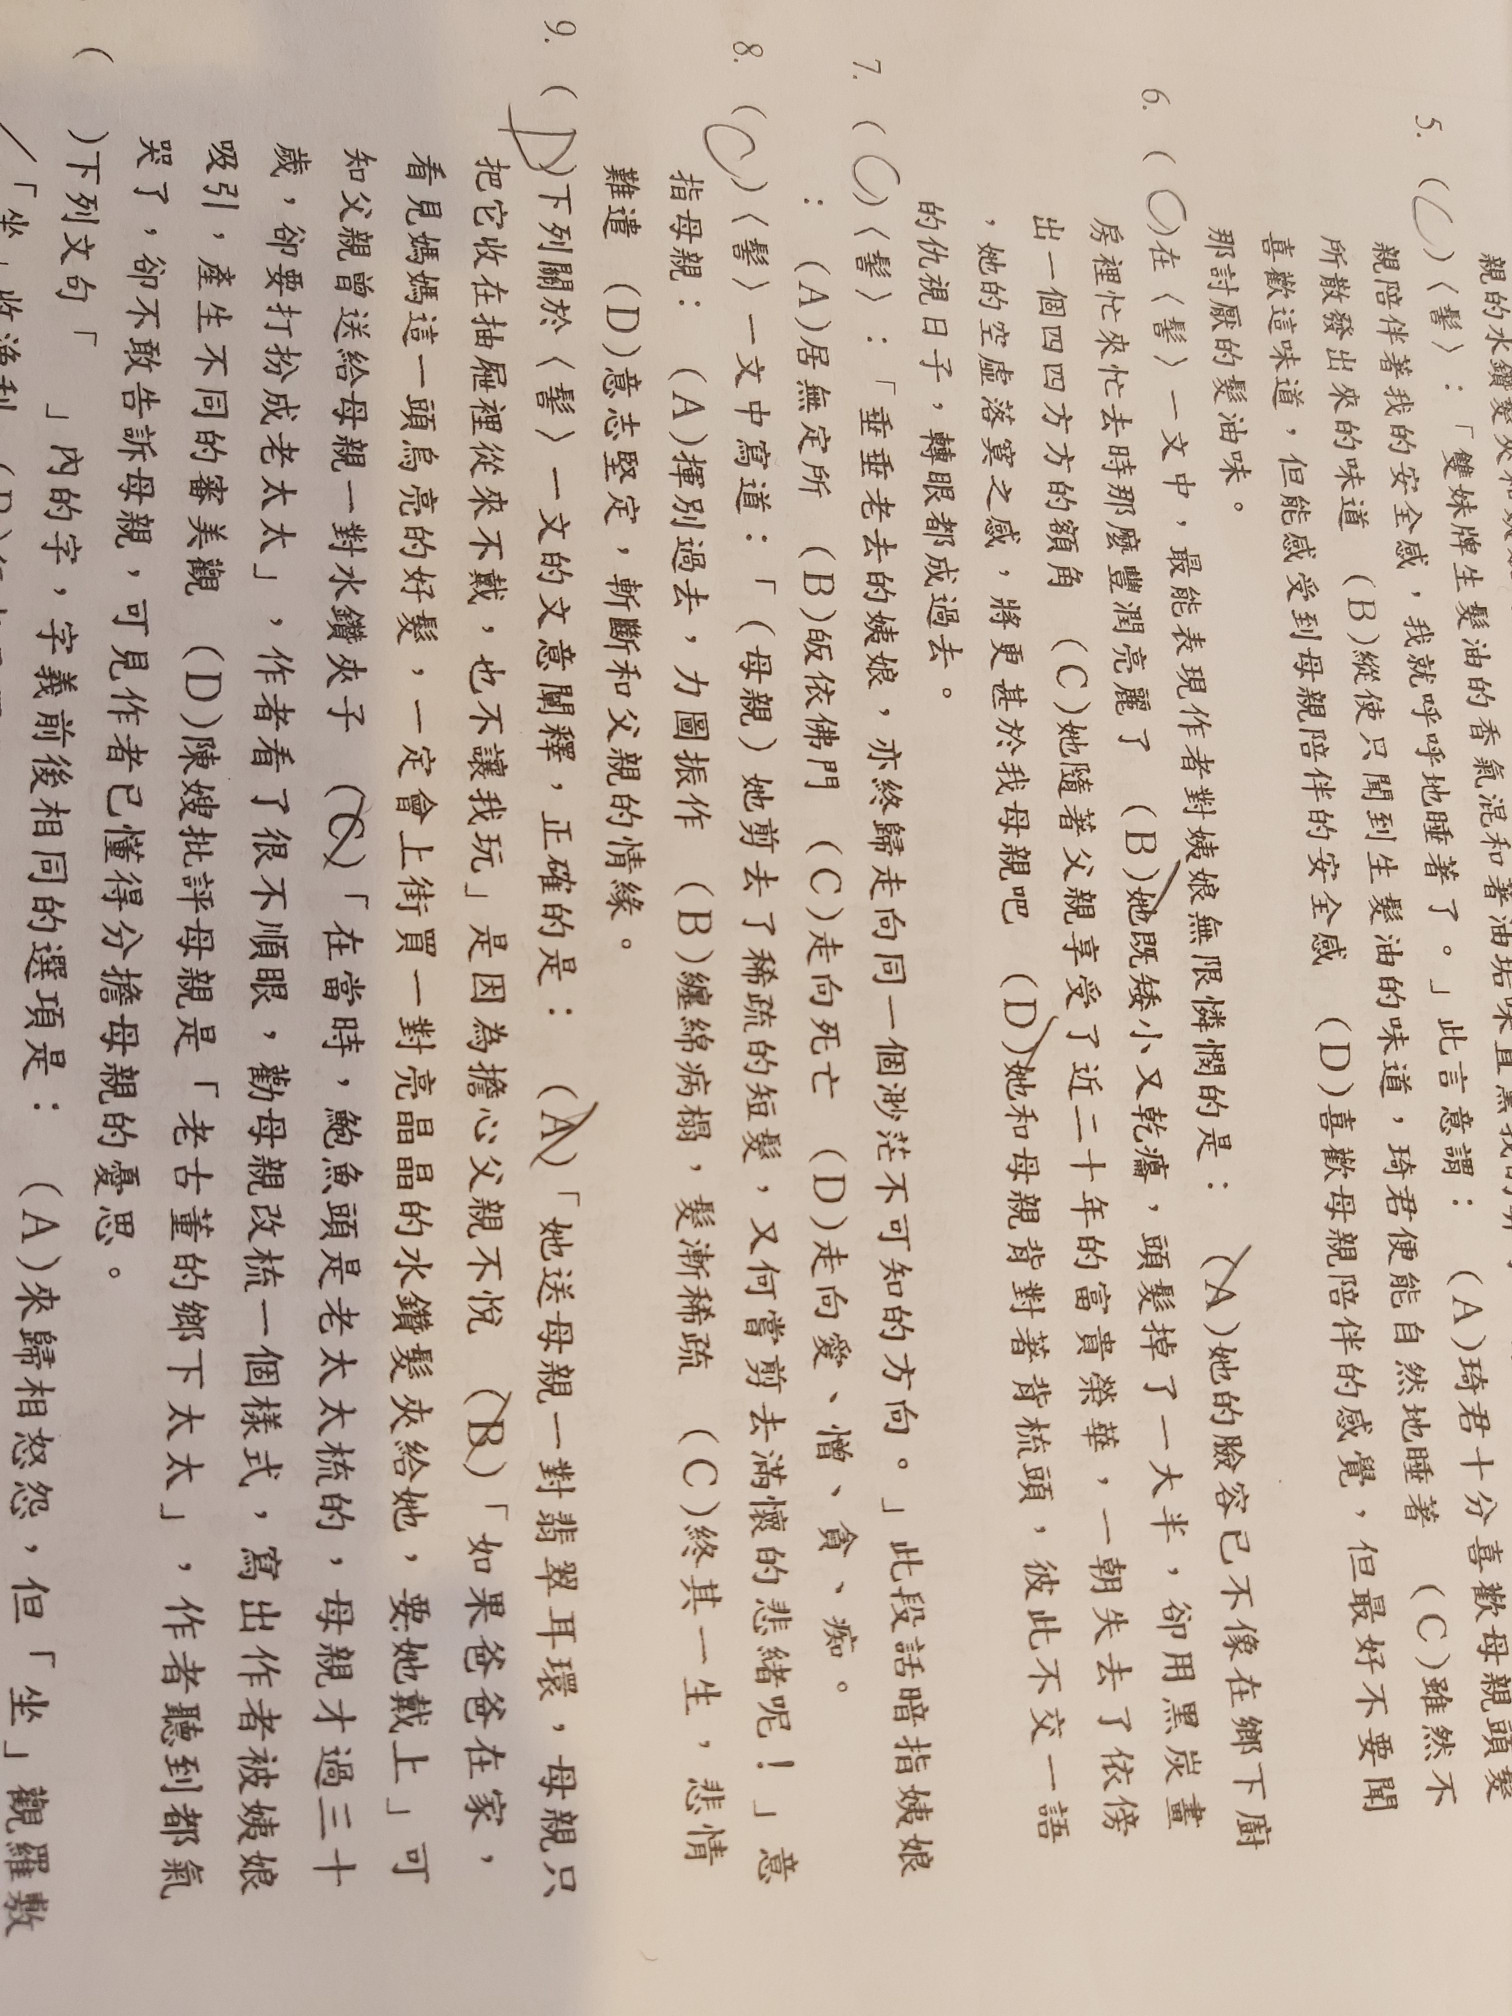 親的水鑽髮夾和
5. (C)〈髻〉:「雙妹牌生髮油的香氣混和著油垢味直薰我的
親陪伴著我的安全感,我就呼呼地睡著了。」此言意謂: (A)琦君十分喜歡母親頭髮
所散發出來的味道 (B)縱使只聞到生髮油的味道,琦君便能自然地睡著 (C)雖然不
喜歡這味道,但能感受到母親陪伴的安全感 (D)喜歡母親陪伴的感覺,但最好不要聞
那討厭的髮油味。
6. (C)在〈髻〉一文中,最能表現作者對姨娘無限憐憫的是: (A)她的臉容已不像在鄉下廚
房裡忙來忙去時那麼豐潤亮麗了 (B)她既矮小又乾癟,頭髮掉了一大半,卻用黑炭畫
出一個四四方方的額角 (C)她隨著父親享受了近二十年的富貴榮華,一朝失去了依傍
,她的空虛落寞之感,將更甚於我母親吧 (D)她和母親背對著背梳頭,彼此不交一語
的仇視日子,轉眼都成過去。
7. (C)〈髻〉:「垂垂老去的姨娘,亦終歸走向同一個渺茫不可知的方向。」此段話暗指姨娘
: (A)居無定所 (B)皈依佛門 (C)走向死亡 (D)走向愛、憎、貪、痴。
8. (C)〈髻〉一文中寫道:「(母親)她剪去了稀疏的短髮,又何嘗剪去滿懷的悲緒呢!」意
指母親: (A)揮別過去,力圖振作 (B)纏綿病榻,髮漸稀疏 (C)終其一生,悲情
難遣 (D)意志堅定,斬斷和父親的情緣。
9. (D)下列關於〈髻〉一文的文意闡釋,正確的是: (A)「她送母親一對翡翠耳環,母親只
把它收在抽屜裡從來不戴,也不讓我玩」是因為擔心父親不悅 (B)「如果爸爸在家,
看見媽媽這一頭烏亮的好髮,一定會上街買一對亮晶晶的水鑽髮夾給她,要她戴上」可
知父親曾送給母親一對水鑽夾子 (C)「在當時,鮑魚頭是老太太梳的,母親才過三十
歲,卻要打扮成老太太」,作者看了很不順眼,勸母親改梳一個樣式,寫出作者被姨娘
吸引,產生不同的審美觀 (D)陳嫂批評母親是「老古董的鄉下太太」,作者聽到都氣
哭了,卻不敢告訴母親,可見作者已懂得分擔母親的憂思。
( )下列文句「 」內的字,字義前後相同的選項是: (A)來歸相怒怨,但「坐」觀羅敷
/「坐」收漁利